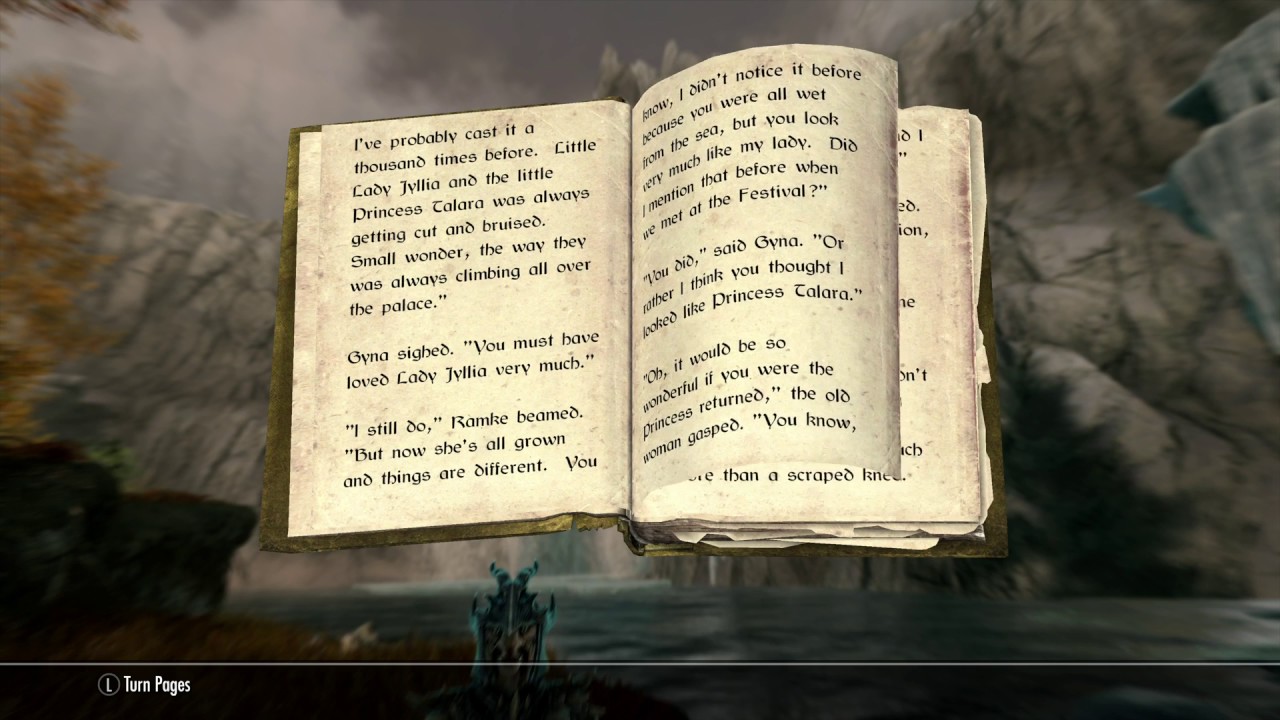 I've probably cast it a
thousand times before. Little
Lady Jyllia and the little
Princess Talara was always
getting cut and bruised.
Small wonder, the way they
was always climbing all over
the palace."
Gyna sighed. "You must have
loved Lady Jyllia very much."
"I still do," Ramke beamed.
"But now she's all grown
and things are different. You
know, I didn't notice it before
because you were all wet
from the sea, but you look
very much like my lady. Did
I mention that before when
we met at the Festival?"
"You did," said Gyna. "Or
rather I think you thought I
looked like Princess Talara."
"Oh, it would be so
wonderful if you were the
Princess returned," the old
woman gasped. "You know,
than a scraped knee.
L Turn Pages